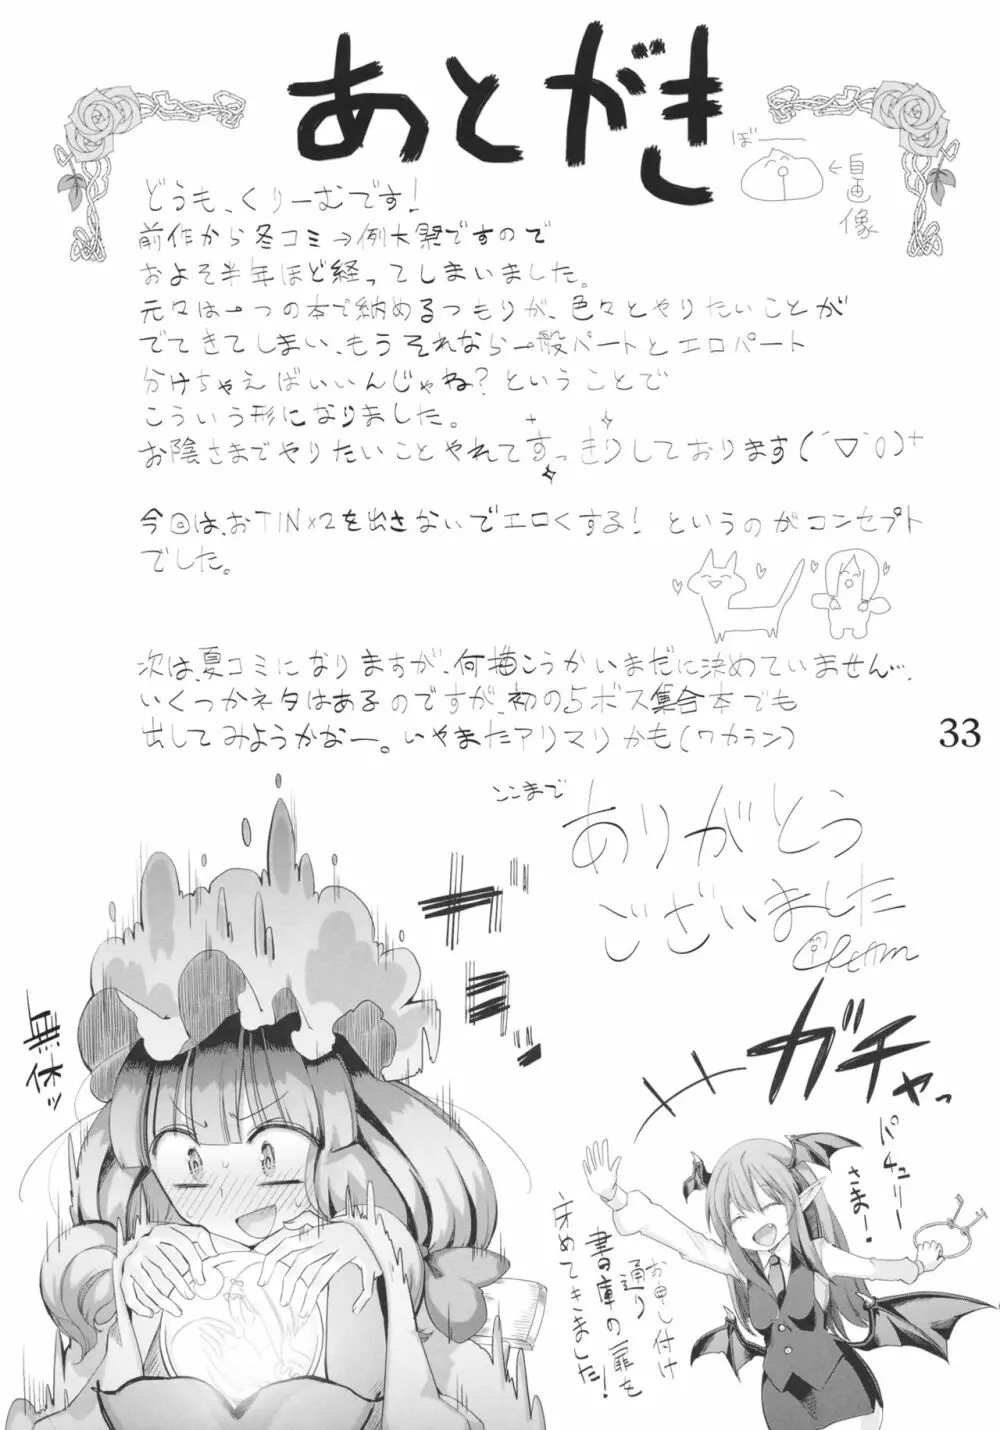 あとがき
ぼーーー
←自画像
どうも、くりーむです!
前作から冬コミ→例大祭ですので
およそ半年ほど経ってしまいました。
元々は一つの本で納めるつもりが、色々とやりたいことが
でてきてしまい、もうそれなら一般パートとエロパート
分けちゃえばいいんじゃね?ということで
こういう形になりました。
お陰さまでやりたいことやれてすっきりしております(´▽`O)+
今回は、おTIN×2を出さないでエロくする!というのがコンセプト
でした。
次は夏コミになりますが、何描こうかいまだに決めていません…
いくつかネタはあるのですが、初の5ボス集合本でも
出してみようかなー。いやまたアリマリかも(ワカラン)
33
ここまで
ありがとう
ございました
無休ッ
ガチャッ
パチュリー
さまー!
お申し付け
通り
書庫の扉を
牙めてきました!